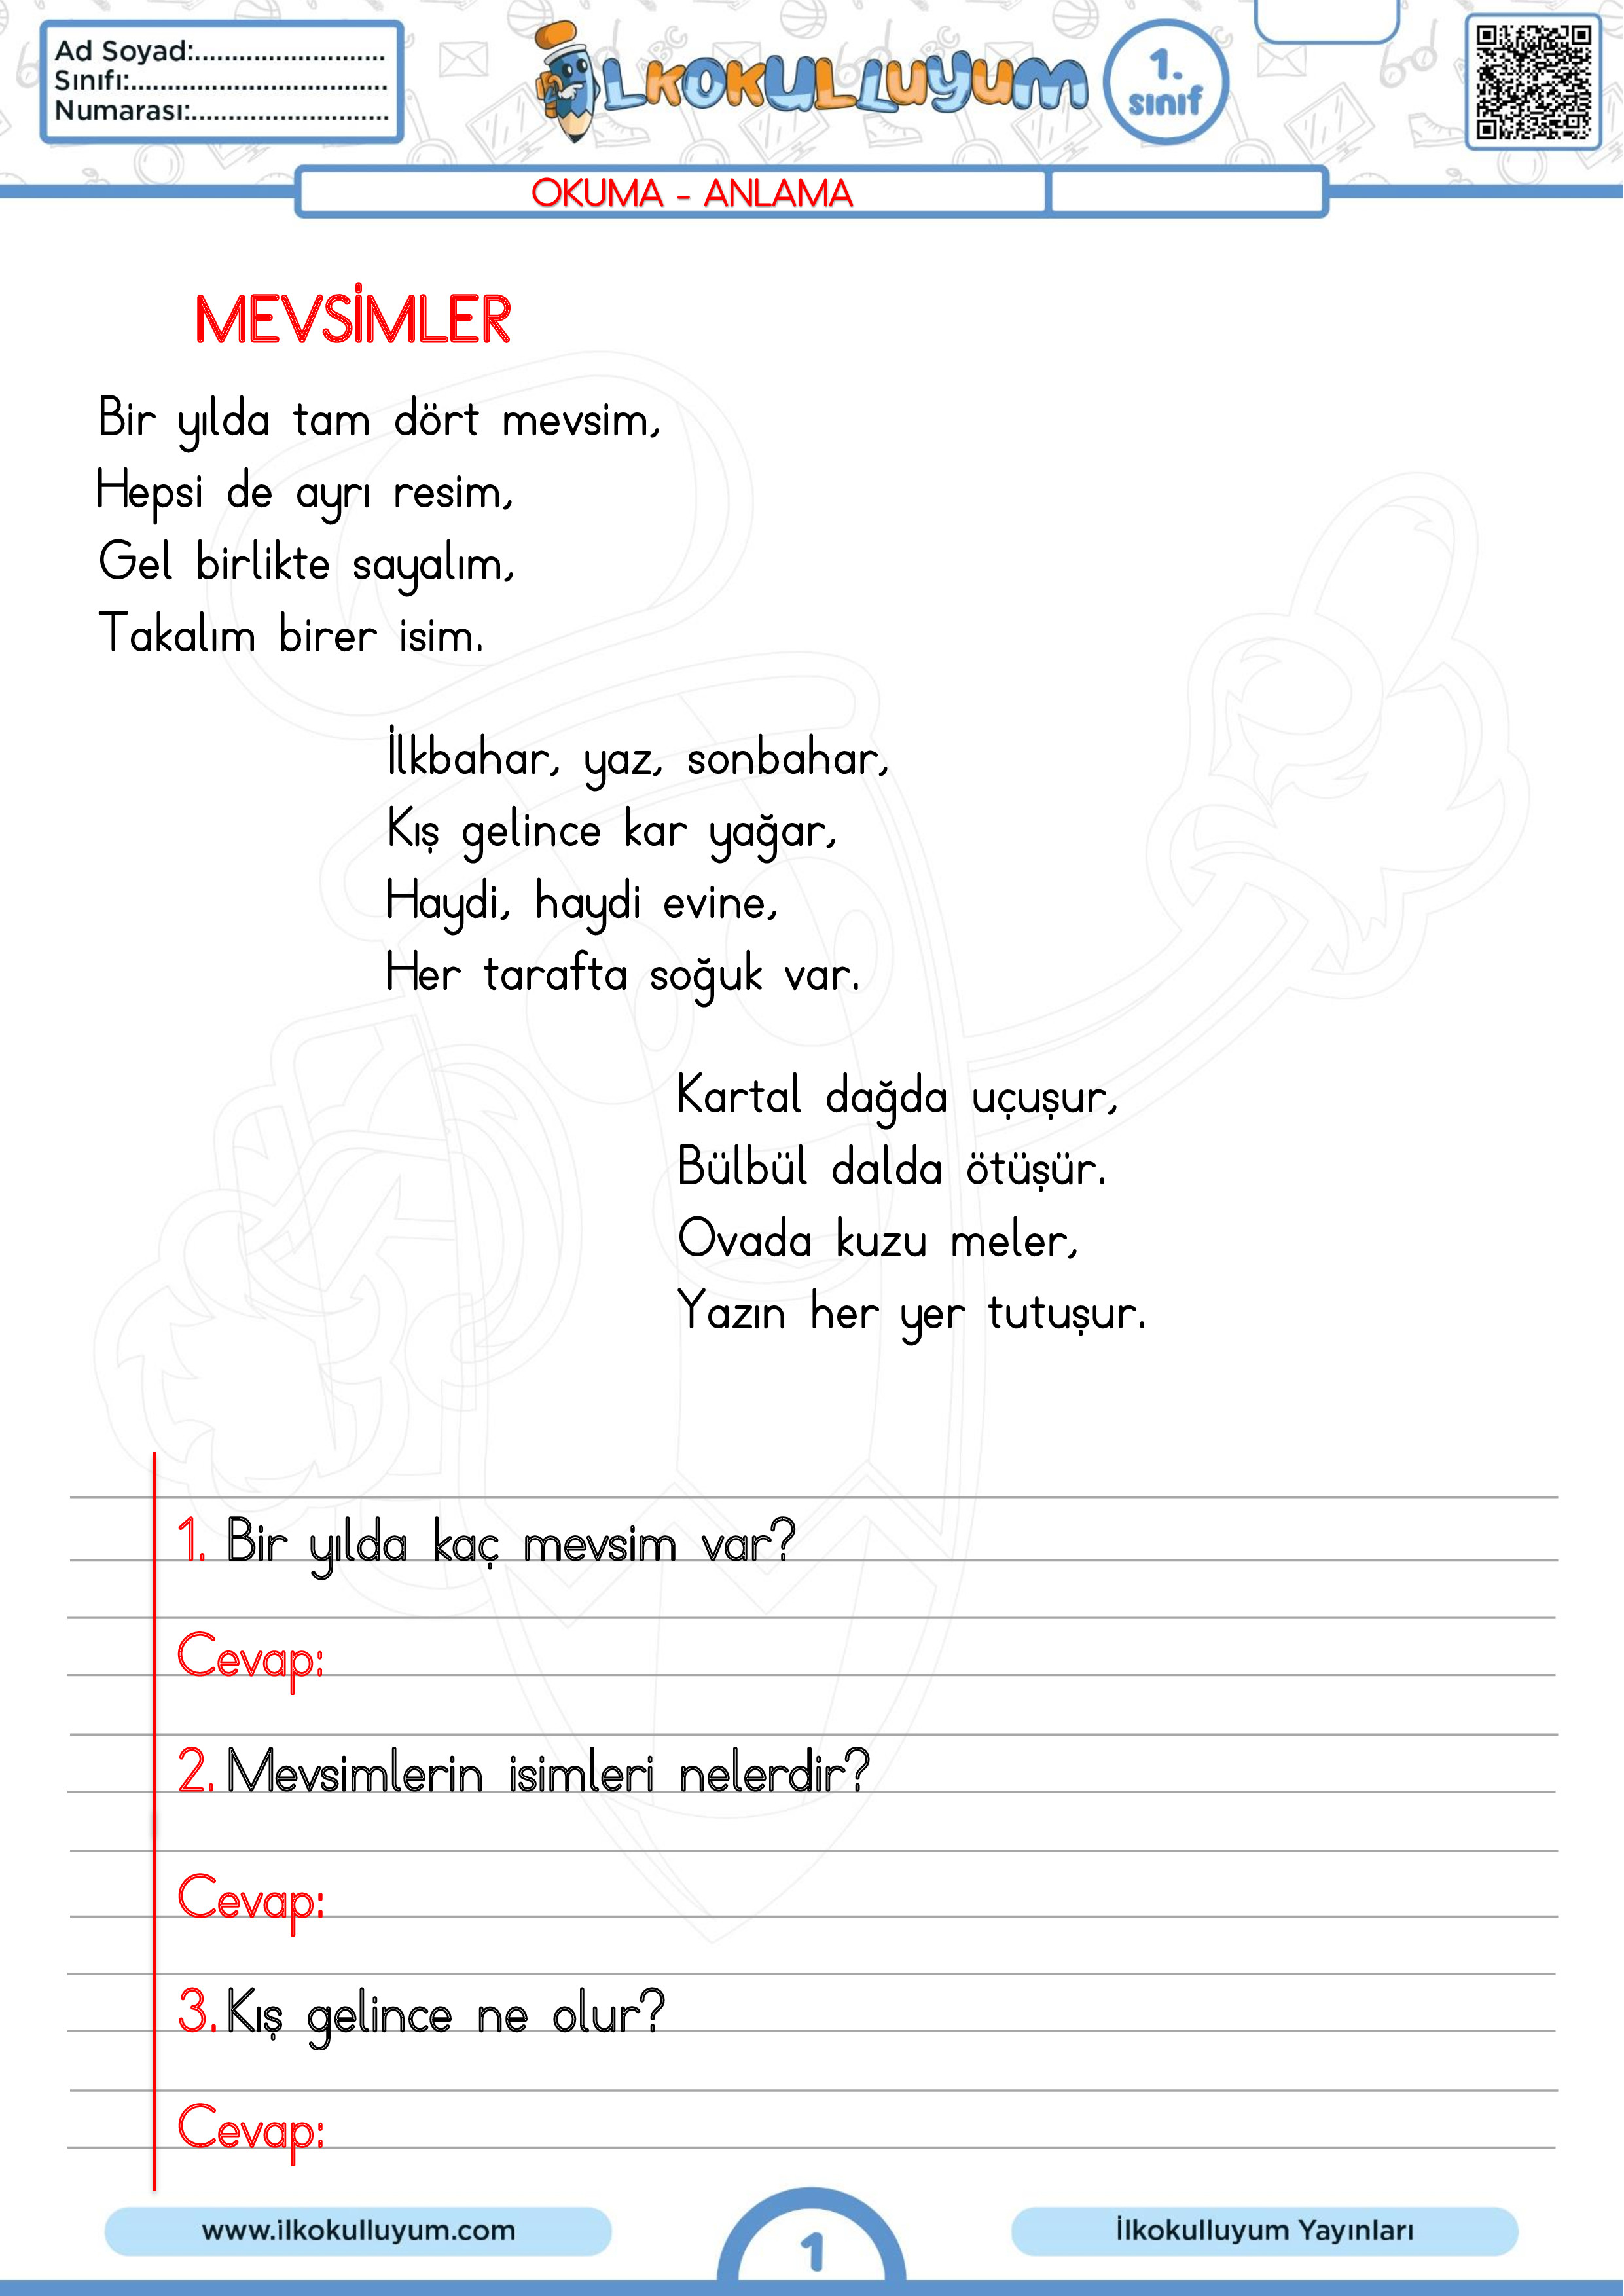 Ad Soyad:..........................
Sınıfı:...................................
Numarası:...........................
İLKOKULLUYUM
1.
sınıf
OKUMA - ANLAMA
MEVSİMLER
Bir yılda tam dört mevsim,
Hepsi de ayrı resim,
Gel birlikte sayalım,
Takalım birer isim.
İlkbahar, yaz, sonbahar,
Kış gelince kar yağar,
Haydi, haydi evine,
Her tarafta soğuk var.
Kartal dağda uçuşur,
Bülbül dalda ötüşür.
Ovada kuzu meler,
Yazın her yer tutuşur.
1. Bir yılda kaç mevsim var?
Cevap:
2. Mevsimlerin isimleri nelerdir?
Cevap:
3. Kış gelince ne olur?
Cevap:
www.ilkokulluyum.com
1
İlkokulluyum Yayınları